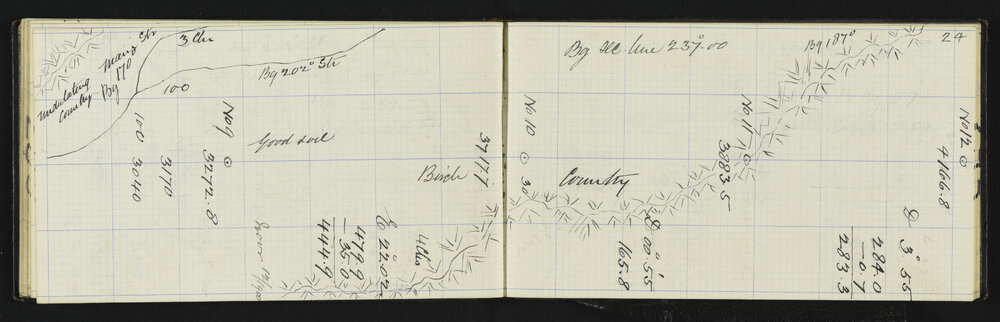 3 Chs
Main Str
Bg 170
Undulating
Country
Bg 202° Str
100
100
3040
3170
No 9
3272.8
Good soil
Birch
3717.1
4 Chs
E 22°.02
479.9
– 35.0
444.9
24
Bg sec line 237°.00
Bg 187°
No 10
30
Country
No 11
3883.5
D 00°.55
165.8
No 12
4166.8
D 3° 55
284.0
– 0.7
283.3